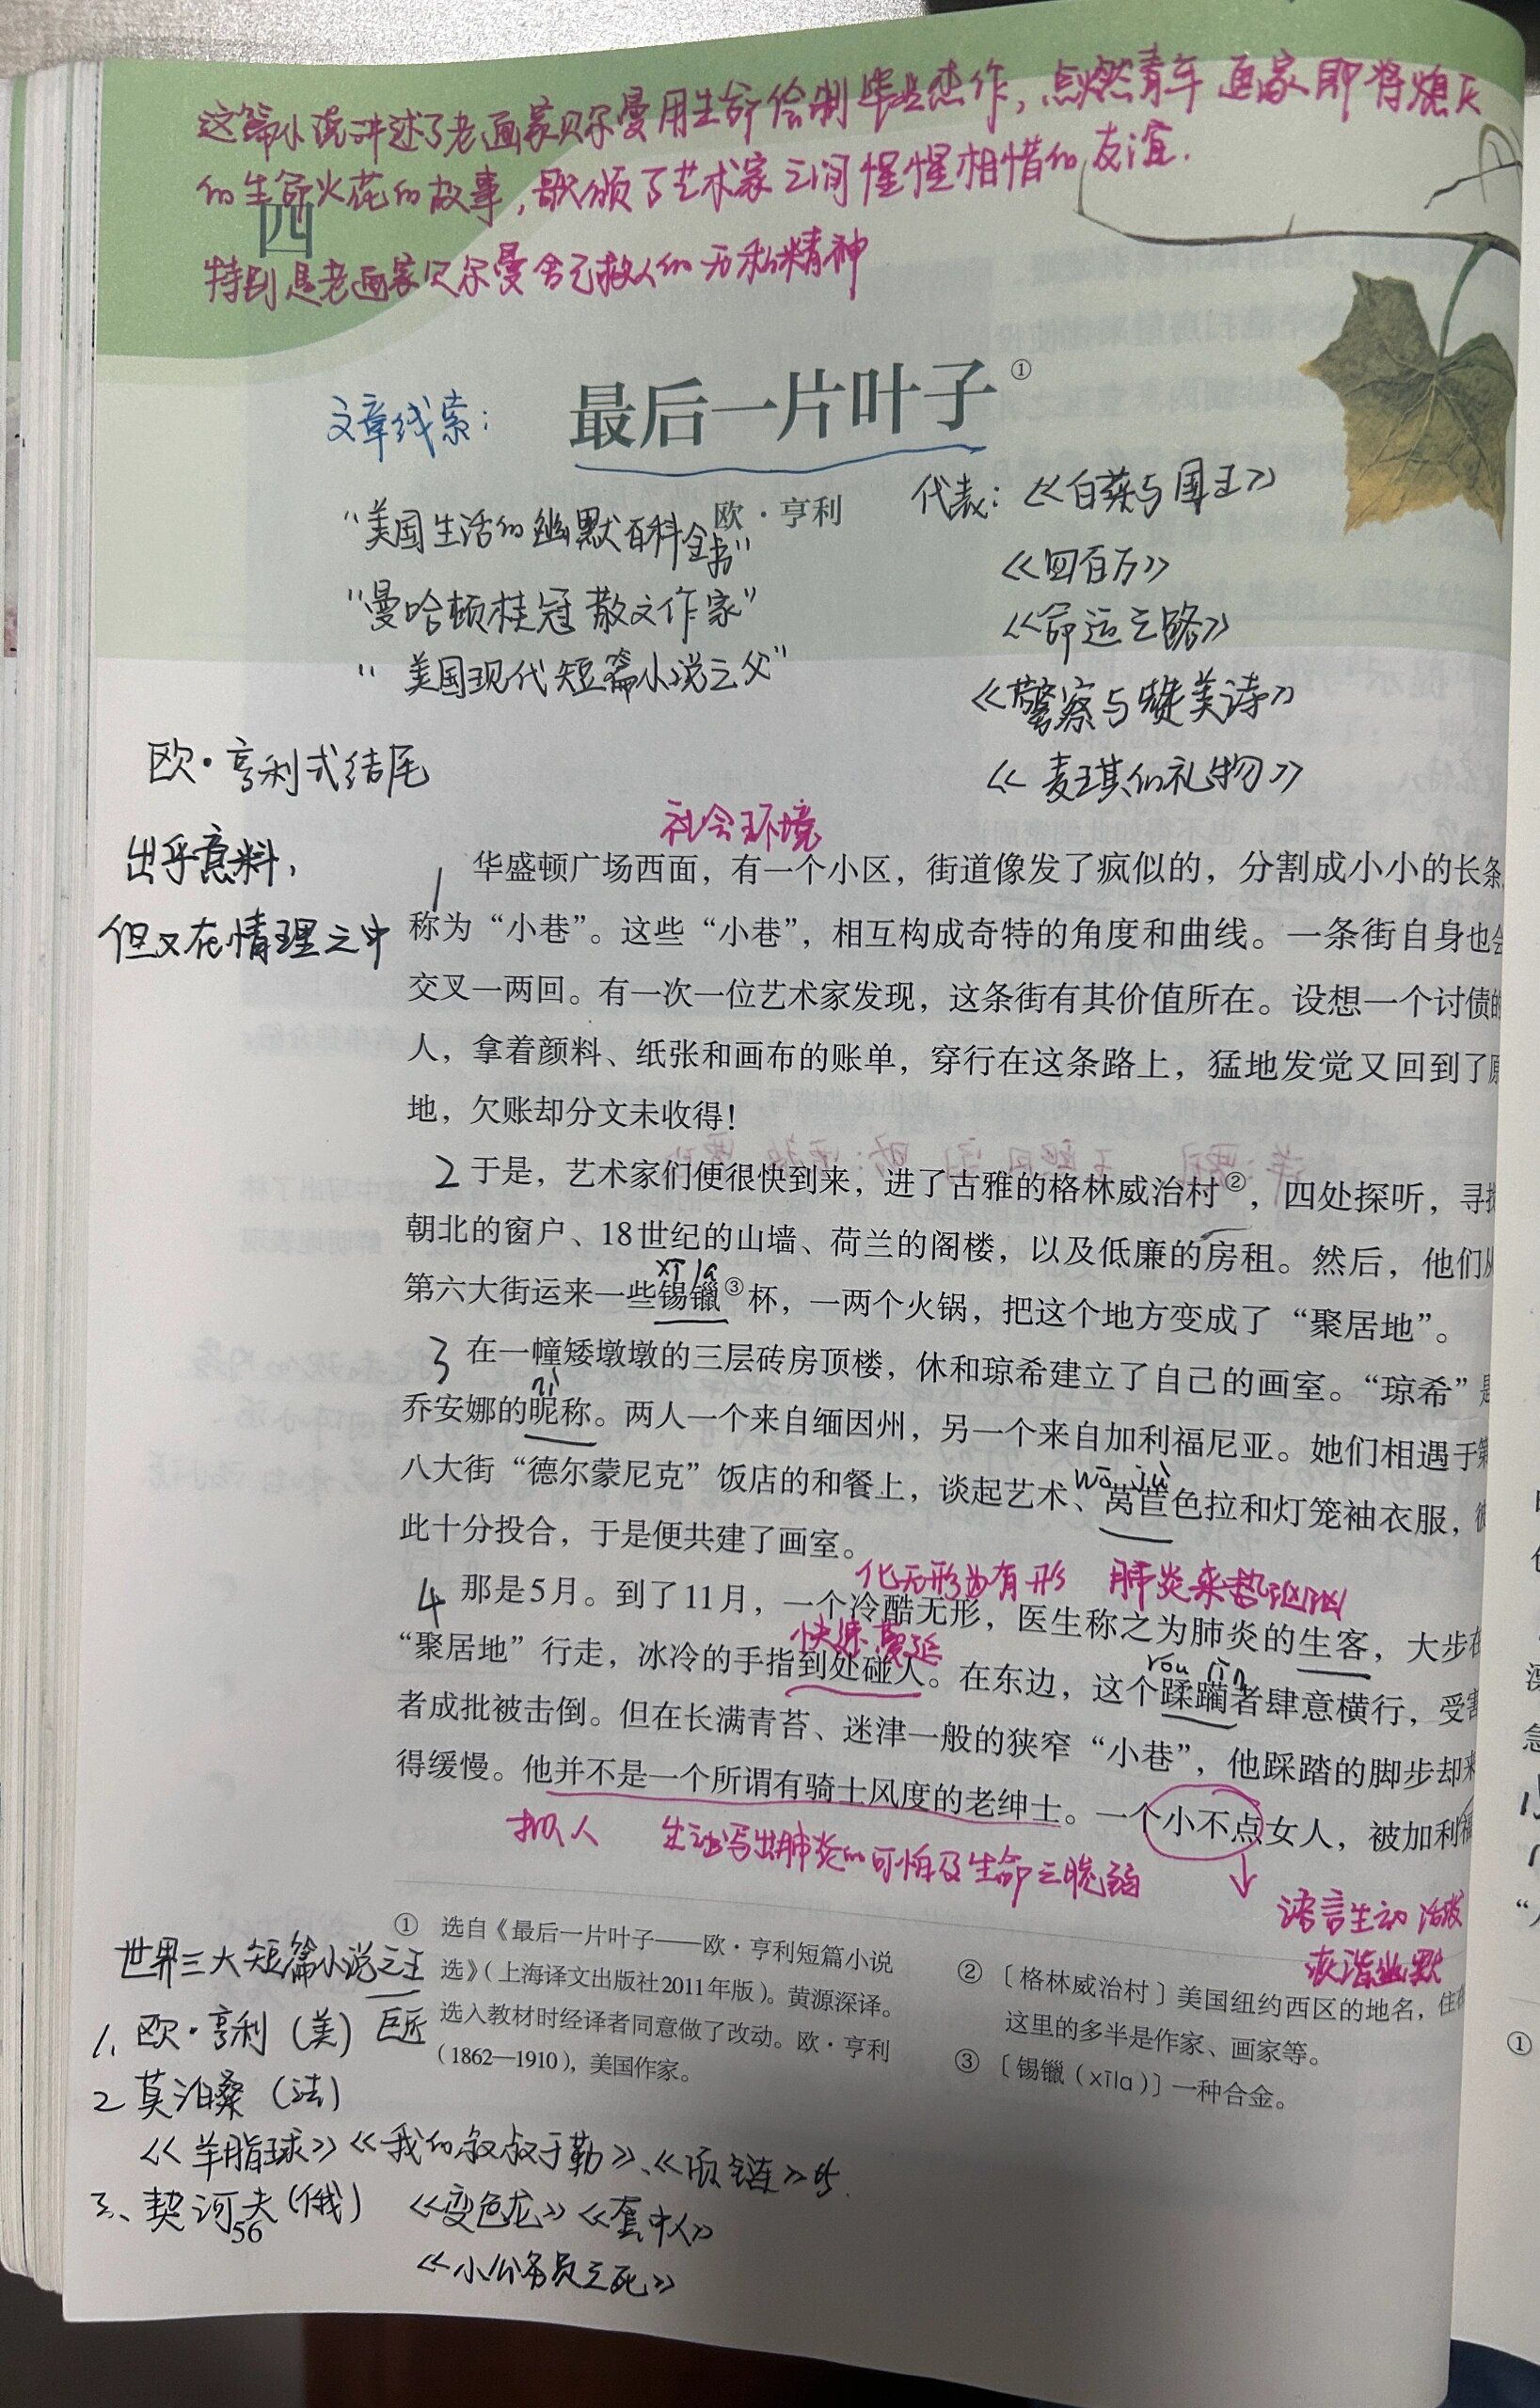 这篇小说讲述了老画家贝尔曼用生命绘制毕生杰作，点燃青年画家即将熄灭
的生命火花的故事，歌颂了艺术家之间惺惺相惜的友谊.
四
特别是老画家贝尔曼舍己救人的无私精神
文章线索：
最后一片叶子①
欧·亨利
代表：《白菜与国王》
《四百万》
《命运之路》
《警察与赞美诗》
《麦琪的礼物》
“美国生活的幽默百科全书”
“曼哈顿桂冠散文作家”
“美国现代短篇小说之父”
欧·亨利式结尾
出乎意料，
但又在情理之中
社会环境
1 华盛顿广场西面，有一个小区，街道像发了疯似的，分割成小小的长条
称为“小巷”。这些“小巷”，相互构成奇特的角度和曲线。一条街自身也会
交叉一两回。有一次一位艺术家发现，这条街有其价值所在。设想一个讨债的
人，拿着颜料、纸张和画布的账单，穿行在这条路上，猛地发觉又回到了原
地，欠账却分文未收得！
2 于是，艺术家们便很快到来，进了古雅的格林威治村②，四处探听，寻找
朝北的窗户、18世纪的山墙、荷兰的阁楼，以及低廉的房租。然后，他们从
xī la
第六大街运来一些锡镴③杯，一两个火锅，把这个地方变成了“聚居地”。
3 在一幢矮墩墩的三层砖房顶楼，休和琼希建立了自己的画室。“琼希”是
nì
乔安娜的昵称。两人一个来自缅因州，另一个来自加利福尼亚。她们相遇于第
八大街“德尔蒙尼克”饭店的和餐上，谈起艺术、莴苣色拉和灯笼袖衣服，彼
wō jù
此十分投合，于是便共建了画室。
化无形为有形 肺炎来势汹汹
4 那是5月。到了11月，一个冷酷无形，医生称之为肺炎的生客，大步在
快速蔓延
“聚居地”行走，冰冷的手指到处碰人。在东边，这个蹂躏者肆意横行，受害
róu lìn
者成批被击倒。但在长满青苔、迷津一般的狭窄“小巷”，他踩踏的脚步却来
得缓慢。他并不是一个所谓有骑士风度的老绅士。一个小不点女人，被加利福
拟人 生动写出肺炎的可怕及生命之脆弱
语言生动活泼
诙谐幽默
① 选自《最后一片叶子——欧·亨利短篇小说
选》（上海译文出版社2011年版）。黄源深译。
选入教材时经译者同意做了改动。欧·亨利
（1862—1910），美国作家。
② 〔格林威治村〕美国纽约西区的地名，住在
这里的多半是作家、画家等。
③ 〔锡镴（xīla）〕一种合金。
世界三大短篇小说之王
巨匠
1、欧·亨利（美）
2 莫泊桑（法）
《羊脂球》《我的叔叔于勒》、《项链》等.
3、契诃夫（俄） 《变色龙》《套中人》
《小公务员之死》
56